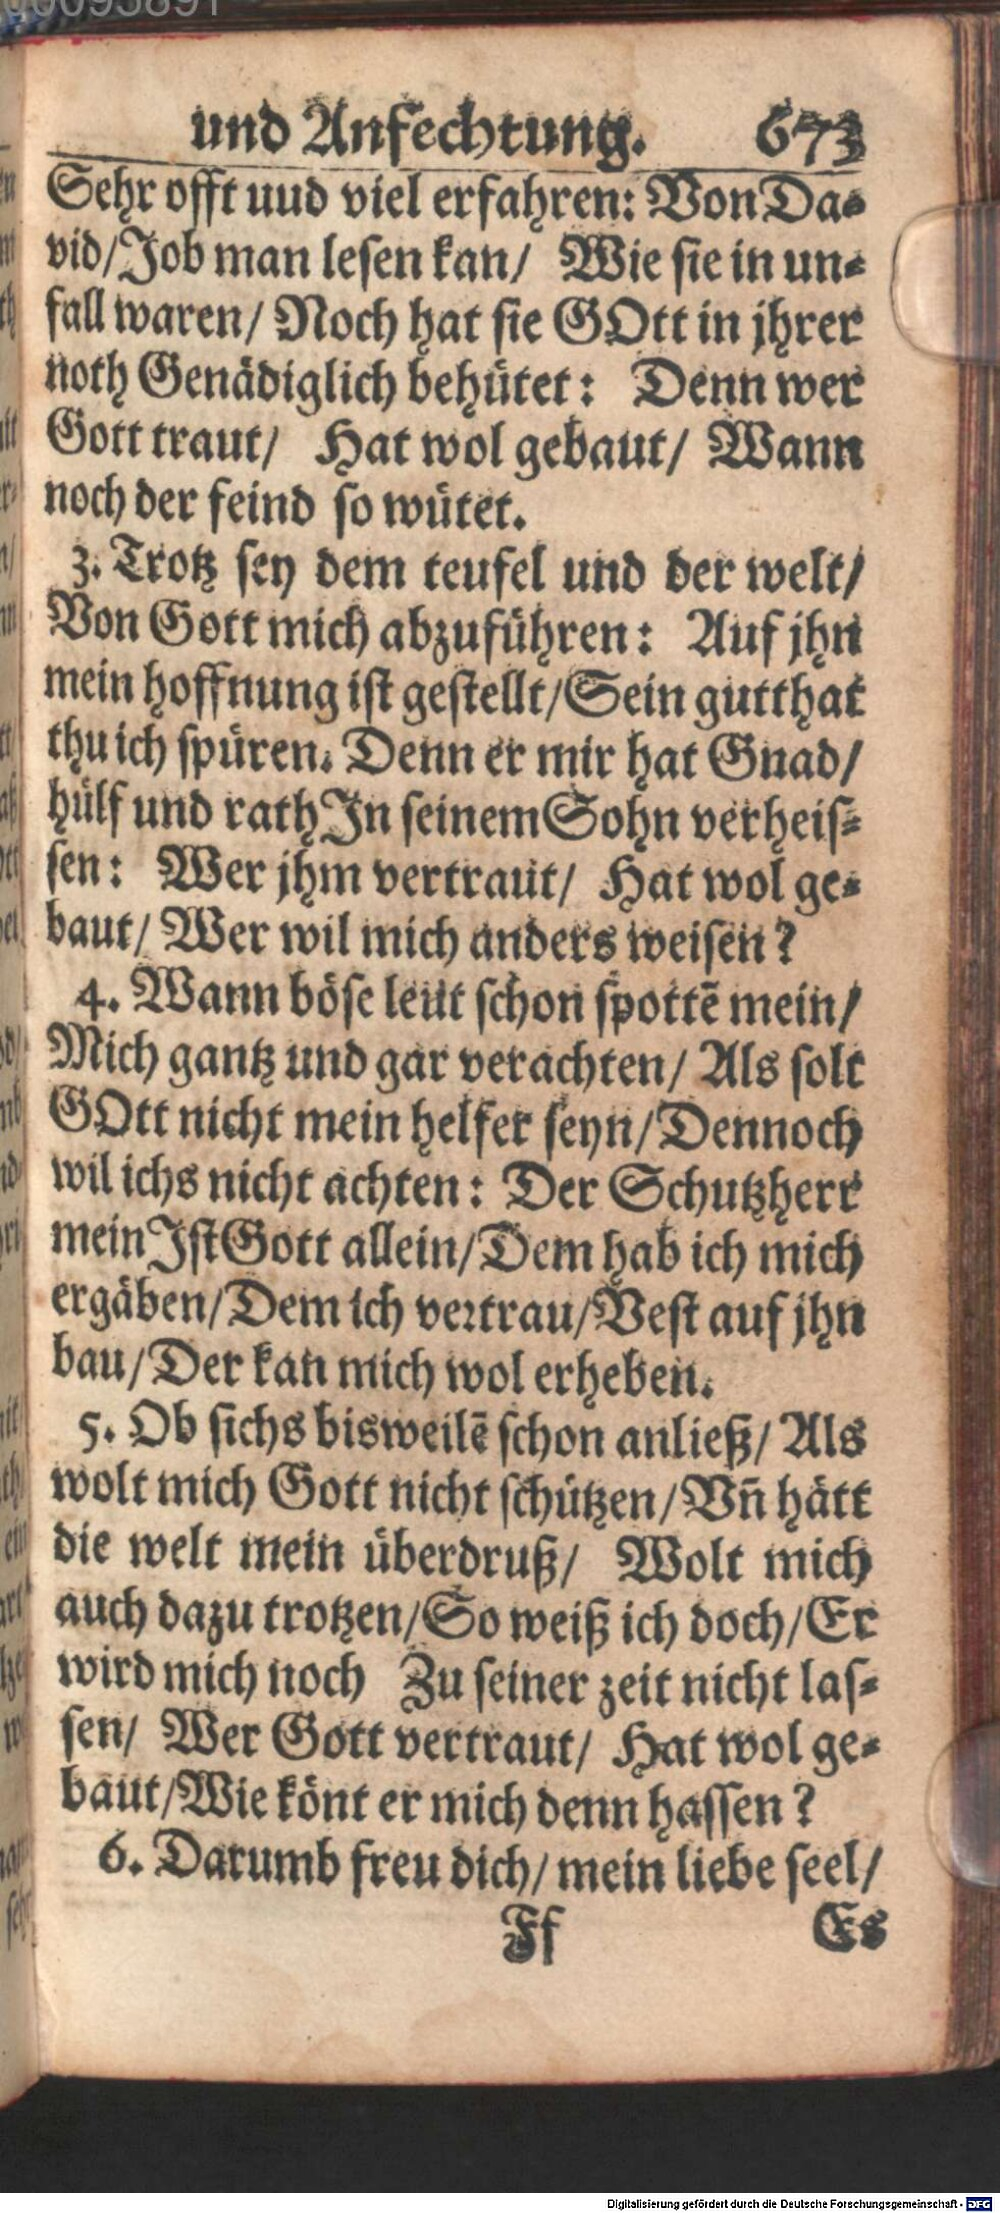 und Anfechtung. 673
Sehr offt uud viel erfahren: Von Da-
vid/Job man lesen kan/ Wie sie in un-
fall waren/ Noch hat sie GOtt in jhrer
noth Genädiglich behütet: Denn wer
Gott traut/ Hat wol gebaut/ Wann
noch der feind so wütet.
3. Trotz sey dem teufel und der welt/
Von Gott mich abzuführen: Auf jhn
mein hoffnung ist gestellt/Sein gutthat
thu ich spüren. Denn er mir hat Gnad/
hülf und rath In seinem Sohn verheis-
sen: Wer jhm vertraut/ Hat wol ge-
baut/ Wer wil mich anders weisen?
4. Wann böse leut schon spottē mein/
Mich gantz und gar verachten/ Als solt
GOtt nicht mein helfer seyn/Dennoch
wil ichs nicht achten: Der Schutzherr
mein Ist Gott allein/Dem hab ich mich
ergäben/Dem ich vertrau/Vest auf jhn
bau/Der kan mich wol erheben.
5. Ob sichs bisweilē schon anließ/ Als
wolt mich Gott nicht schützen/Vn̄ hätt
die welt mein überdruß/ Wolt mich
auch dazu trotzen/So weiß ich doch/Er
wird mich noch Zu seiner zeit nicht las-
sen/ Wer Gott vertraut/ Hat wol ge-
baut/Wie könt er mich denn hassen?
6. Darumb freu dich/mein liebe seel/
Ff Es
Digitalisierung gefördert durch die Deutsche Forschungsgemeinschaft - DFG